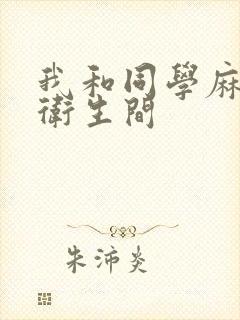 我和同學麻
衛生間
朱沛炎